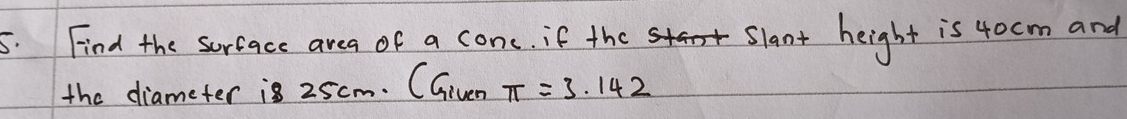 5. Find the surface area of a cone. if the start slant height is 40cm and
the diameter is 25cm. (Given π = 3.142